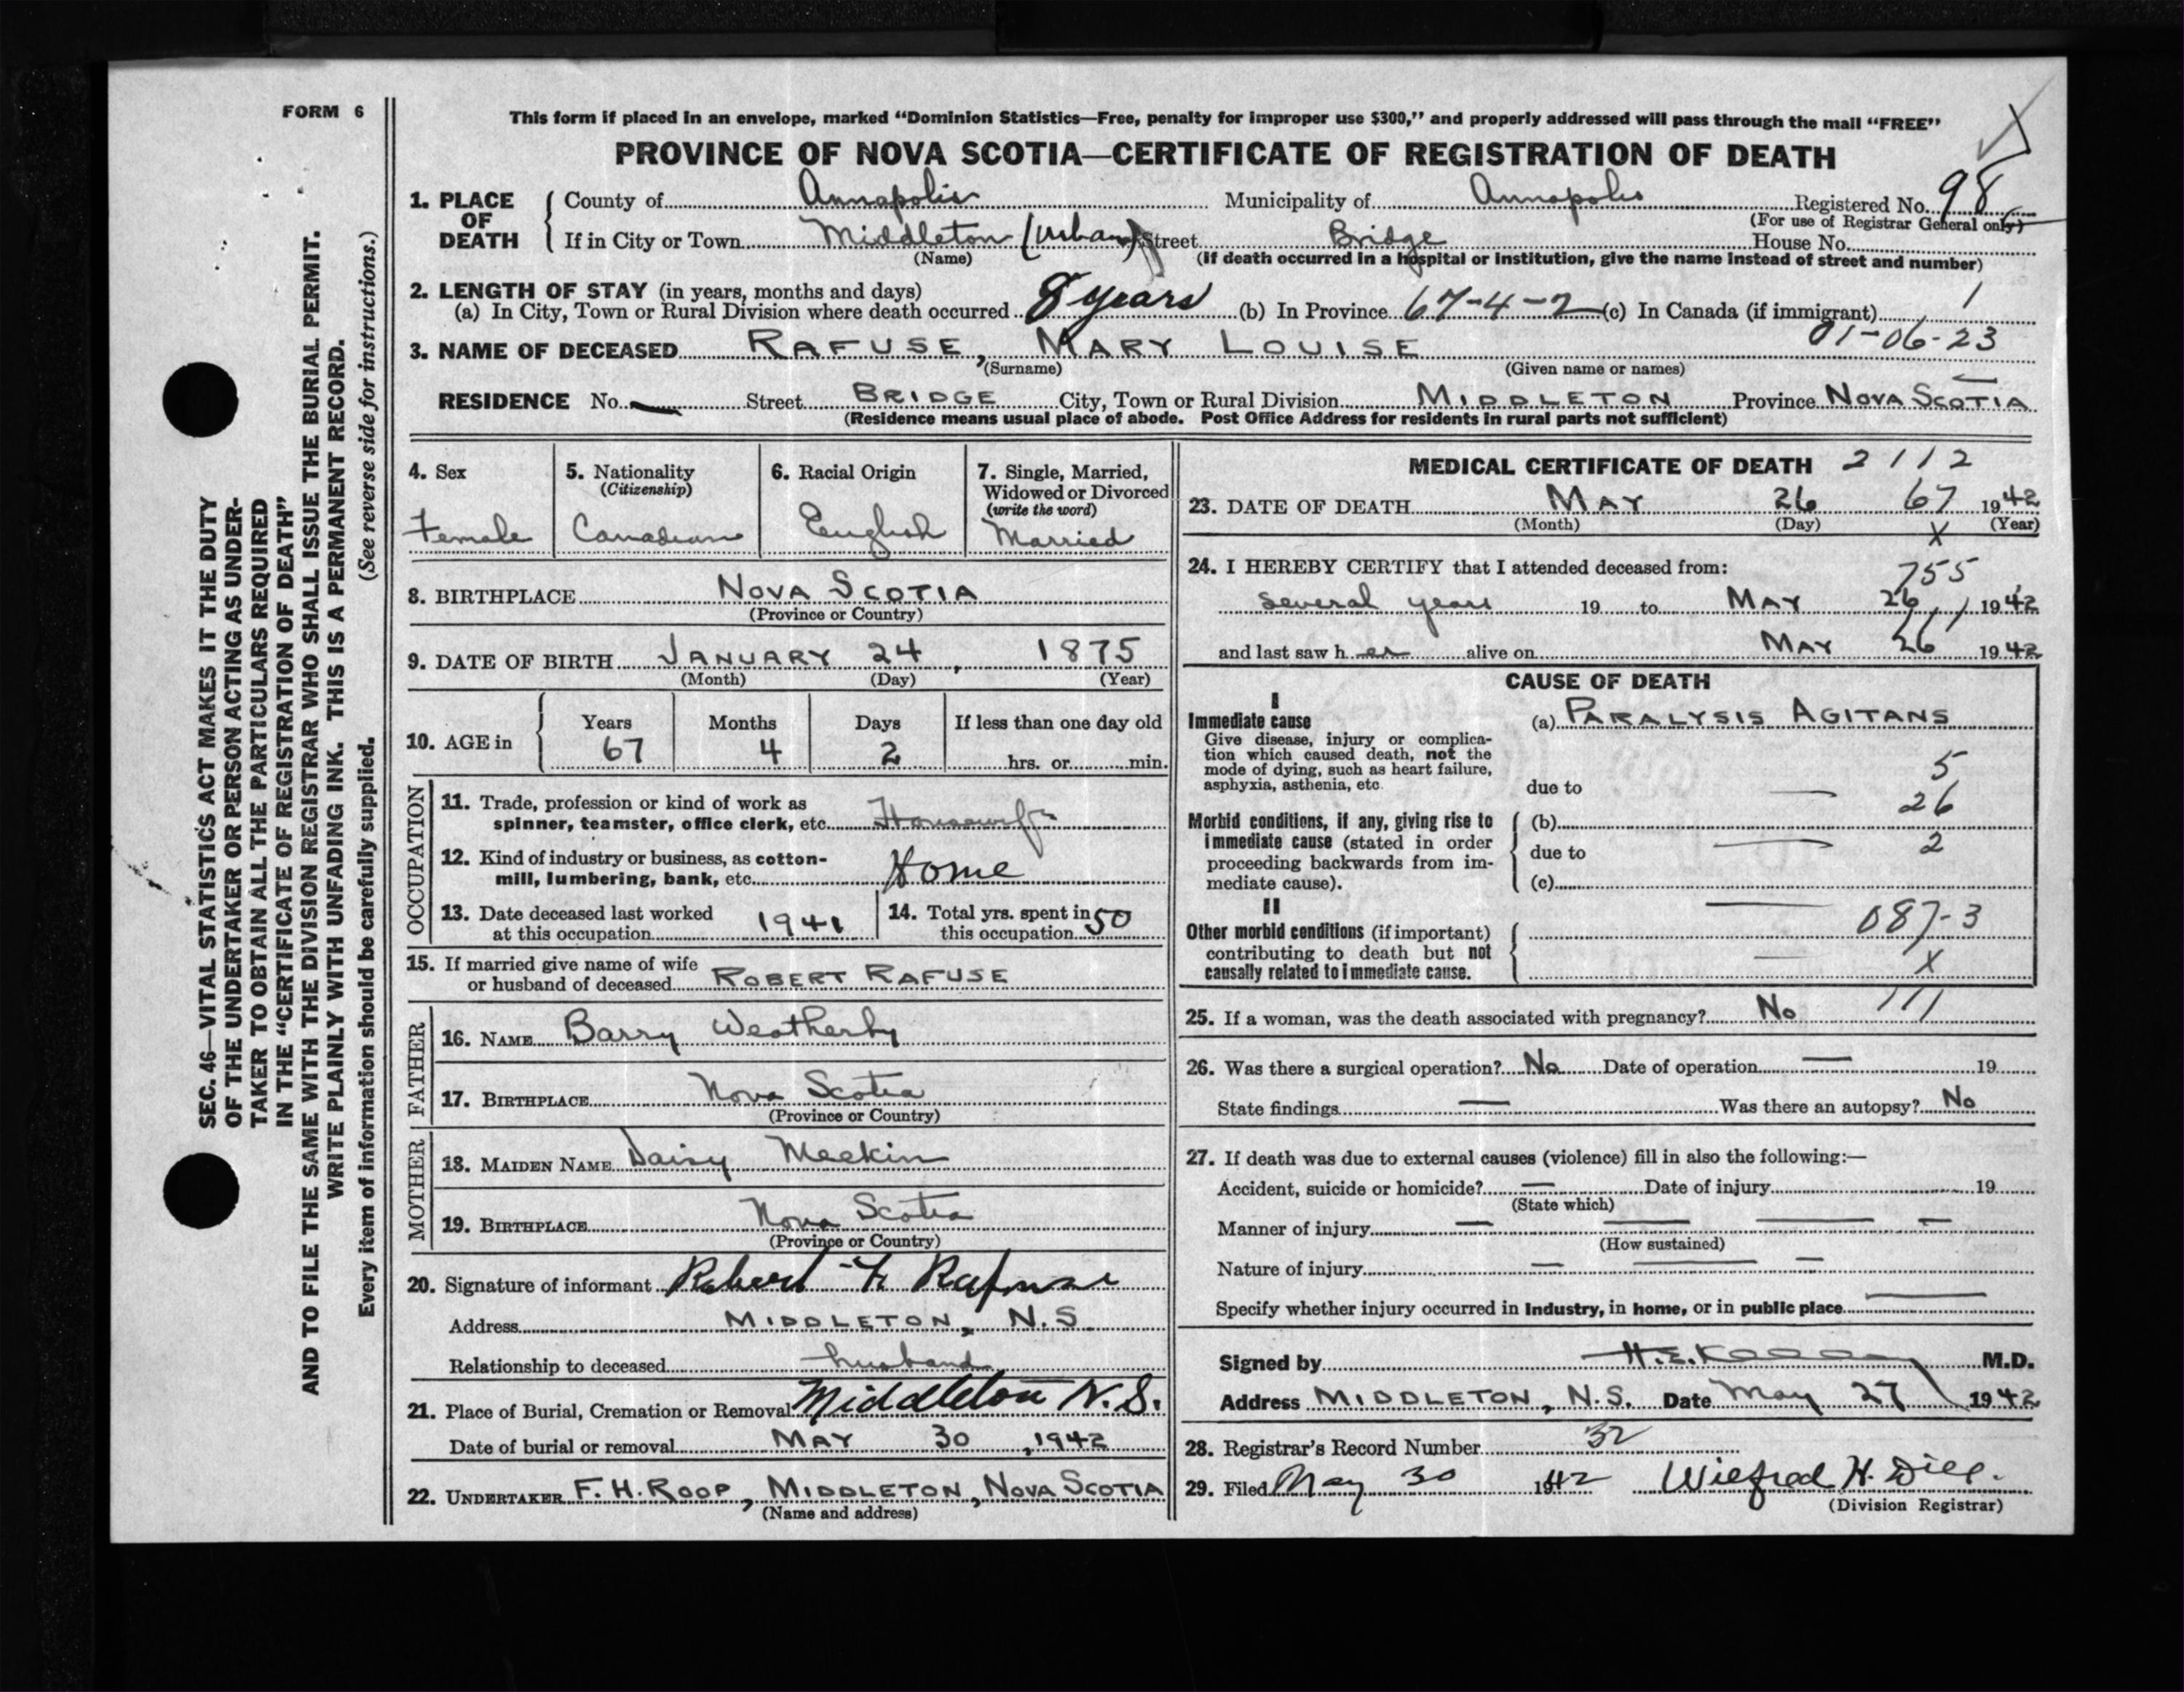 FORM 6
SEC. 46—VITAL STATISTICS ACT MAKES IT THE DUTY
OF THE UNDERTAKER OR PERSON ACTING AS UNDER-
TAKER TO OBTAIN ALL THE PARTICULARS REQUIRED
IN THE "CERTIFICATE OF REGISTRATION OF DEATH"
AND TO FILE THE SAME WITH THE DIVISION REGISTRAR WHO SHALL ISSUE THE BURIAL PERMIT.
WRITE PLAINLY WITH UNFADING INK. THIS IS A PERMANENT RECORD.
Every item of information should be carefully supplied. (See reverse side for instructions.)
This form if placed in an envelope, marked "Dominion Statistics—Free, penalty for improper use $300," and properly addressed will pass through the mail "FREE"
PROVINCE OF NOVA SCOTIA—CERTIFICATE OF REGISTRATION OF DEATH
1. PLACE OF DEATH County of Annapolis Municipality of Annapolis Registered No. 98
(For use of Registrar General only)
If in City or Town Middleton (Urban) Street Bridge House No.
(Name) (If death occurred in a hospital or institution, give the name instead of street and number)
2. LENGTH OF STAY (in years, months and days)
(a) In City, Town or Rural Division where death occurred 8 years (b) In Province 67-4-2 (c) In Canada (if immigrant) 1
01-06-23
3. NAME OF DECEASED RAFUSE, MARY LOUISE
(Surname) (Given name or names)
RESIDENCE No. — Street BRIDGE City, Town or Rural Division MIDDLETON Province NOVA SCOTIA
(Residence means usual place of abode. Post Office Address for residents in rural parts not sufficient)
4. Sex
Female
5. Nationality
(Citizenship)
Canadian
6. Racial Origin
English
7. Single, Married,
Widowed or Divorced
(write the word)
Married
8. BIRTHPLACE NOVA SCOTIA
(Province or Country)
9. DATE OF BIRTH JANUARY 24, 1875
(Month) (Day) (Year)
10. AGE in Years Months Days If less than one day old
67 4 2 hrs. or min.
OCCUPATION
11. Trade, profession or kind of work as
spinner, teamster, office clerk, etc. Housewife
12. Kind of industry or business, as cotton-
mill, lumbering, bank, etc. Home
13. Date deceased last worked
at this occupation 1941
14. Total yrs. spent in
this occupation 50
15. If married give name of wife
or husband of deceased ROBERT RAFUSE
FATHER
16. NAME Barry Weatherby
17. BIRTHPLACE Nova Scotia
(Province or Country)
MOTHER
18. MAIDEN NAME Daisy Meekin
19. BIRTHPLACE Nova Scotia
(Province or Country)
20. Signature of informant Robert Rafuse
Address MIDDLETON, N.S.
Relationship to deceased husband
21. Place of Burial, Cremation or Removal Middleton N.S.
Date of burial or removal MAY 30, 1942
22. UNDERTAKER F. H. ROOP, MIDDLETON, NOVA SCOTIA
(Name and address)
MEDICAL CERTIFICATE OF DEATH 2112
23. DATE OF DEATH MAY 26 67 1942
(Month) (Day) X (Year)
24. I HEREBY CERTIFY that I attended deceased from:
755
several years 19 to MAY 26 1942
and last saw her alive on MAY 26 1942
CAUSE OF DEATH
I
Immediate cause (a) PARALYSIS AGITANS
Give disease, injury or complica-
tion which caused death, not the
mode of dying, such as heart failure,
asphyxia, asthenia, etc.
due to — 5
26
Morbid conditions, if any, giving rise to (b)
immediate cause (stated in order due to — 2
proceeding backwards from im-
mediate cause). (c)
II —
Other morbid conditions (if important) 087-3
contributing to death but not
causally related to immediate cause. — X
25. If a woman, was the death associated with pregnancy? No 111
26. Was there a surgical operation? No Date of operation — 19
State findings — Was there an autopsy? No
27. If death was due to external causes (violence) fill in also the following:—
Accident, suicide or homicide? — Date of injury 19
(State which)
Manner of injury — — — —
(How sustained)
Nature of injury — — —
Specify whether injury occurred in industry, in home, or in public place —
Signed by H. E. M.D.
Address MIDDLETON, N.S. Date May 27 1942
28. Registrar's Record Number 32
29. Filed May 30 1942 Wilfred H. Dill.
(Division Registrar)